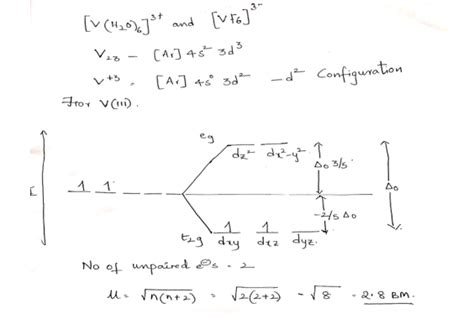 [V(H₂O)₆]³⁺ and [VF₆]³⁻
V₂₃ – [Ar] 4s² 3d³
V⁺³ = [Ar] 4s⁰ 3d² – d² Configuration
For V(III).
eg
dz² dx²-y²
Δ₀ 3/5
E
1 1
Δ₀
-2/5 Δ₀
1 1
t₂g dxy dxz dyz.
No of unpaired e⊖s - 2
μ = √n(n+2) = √2(2+2) - √8 - 2.8 BM.